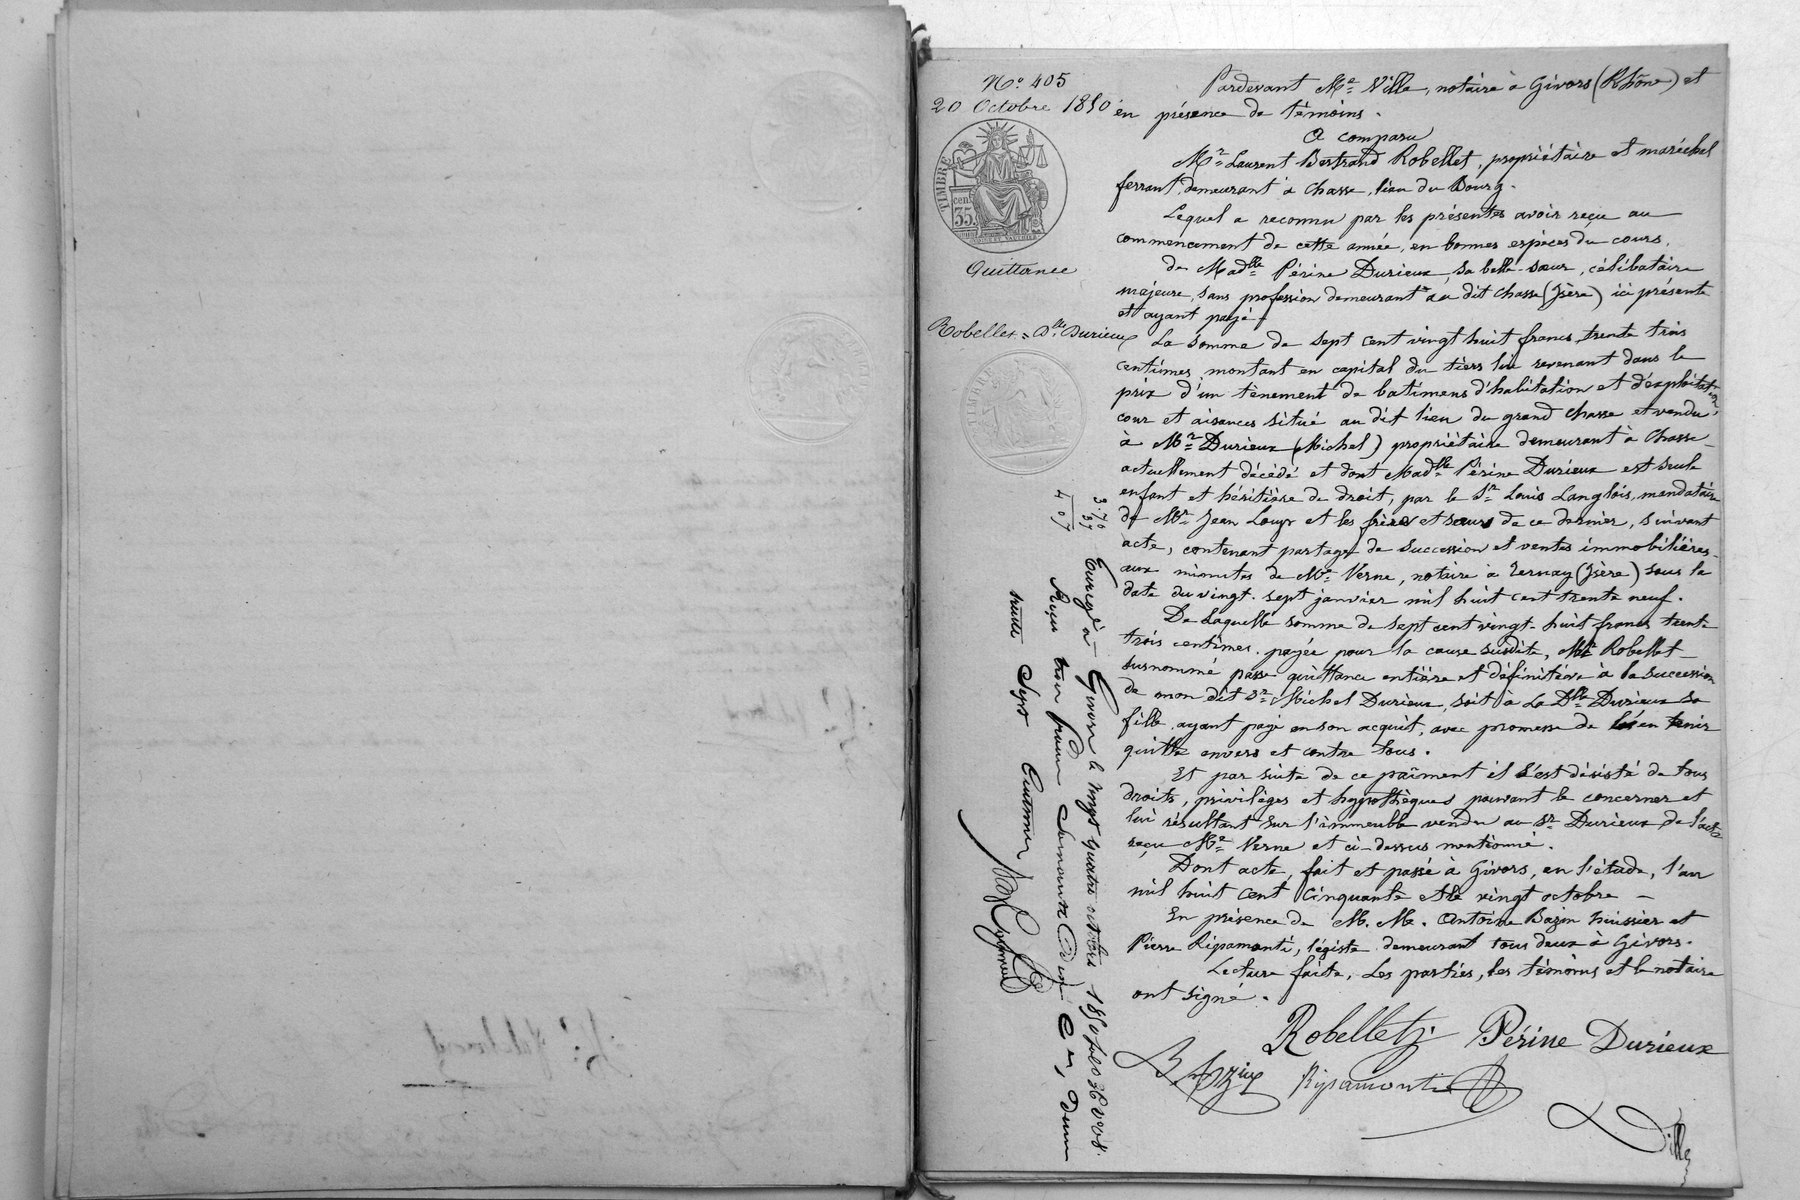 N.o 405
20 Octobre 1850
TIMBRE
cen.
35
Quittance
Robellet = D.lle Durieux
TIMBRE
Pardevant M.e Ville, notaire à Givors (Rhône) et
en présence de témoins.
A comparu
M.r Laurent Bertrand Robellet, propriétaire et maréchal
ferrant, demeurant à Chasse, lieu du Bourg.
Lequel a reconnu par les présentes avoir reçu au
commencement de cette année, en bonnes espèces du cours,
de Mad.lle Périne Durieux, sa belle-sœur, célibataire
majeure, sans profession demeurant au dit Chasse (Isère) ici présente
et ayant payé
La somme de sept cent vingt huit francs trente trois
centimes, montant en capital du tiers lui revenant dans le
prix d'un tènement de batimens d'habitation et d'exploitation,
cour et aisances situé au dit lieu du grand Chasse et vendu
à M.r Durieux (Michel) propriétaire demeurant à Chasse
actuellement décédé et dont Mad.lle Périne Durieux est seule
enfant et héritière de droit, par le S.r Louis Langlois, mandataire
de M.r Jean Louys et les frères et sœurs de ce dernier, suivant
acte, contenant partage de succession et ventes immobilières
aux minutes de M.e Verne, notaire à Ternay (Isère) sous la
date du vingt-sept janvier mil huit cent trente neuf.
De laquelle somme de sept cent vingt-huit francs trente
trois centimes, payée pour la cause susdite, M.r Robellet
susnommé passe quittance entière et définitive à la succession
de mon dit S.r Michel Durieux, soit à la D.lle Durieux sa
fille, ayant payé en son acquit, avec promesse de l'en tenir
quitte envers et contre tous.
Et par suite de ce paîment il s'est désisté de tous
droits, privilèges et hypothèques pouvant le concerner et
lui résultant sur l'immeuble vendu au S.r Durieux de l'acte
reçu M.e Verne et ci-dessus mentionné.
Dont acte, fait et passé à Givors, en l'étude, l'an
mil huit cent cinquante et le vingt octobre
En présence de M.M. Antoine Bazin huissier et
Pierre Ripamonti, légiste demeurant tous deux à Givors.
Lecture faite, les parties, les témoins et le notaire
ont signé.
Robellet Périne Durieux
Bazin Ripamonti
Ville
3.70
37
4 07
Enregé à Givors le vingt quatre octobre 1850
Reçu trois francs soixante dix c.
trente sept centimes